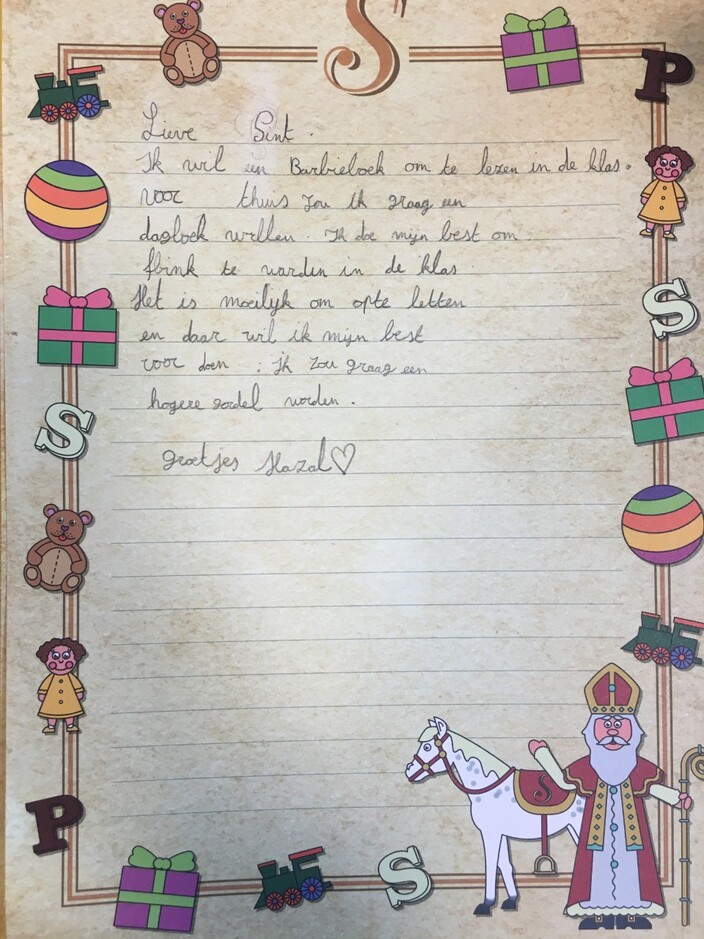 S
P
Lieve Sint.
Ik wil een Barbieboek om te lezen in de klas.
voor thuis zou ik graag een
dagboek willen. Ik doe mijn best om
flink te worden in de klas
Het is moeilijk om opte letten
en daar wil ik mijn best
voor doen ; ik zou graag een
hogere gordel worden.
groetjes Hazal♡
S
S
P
S
S